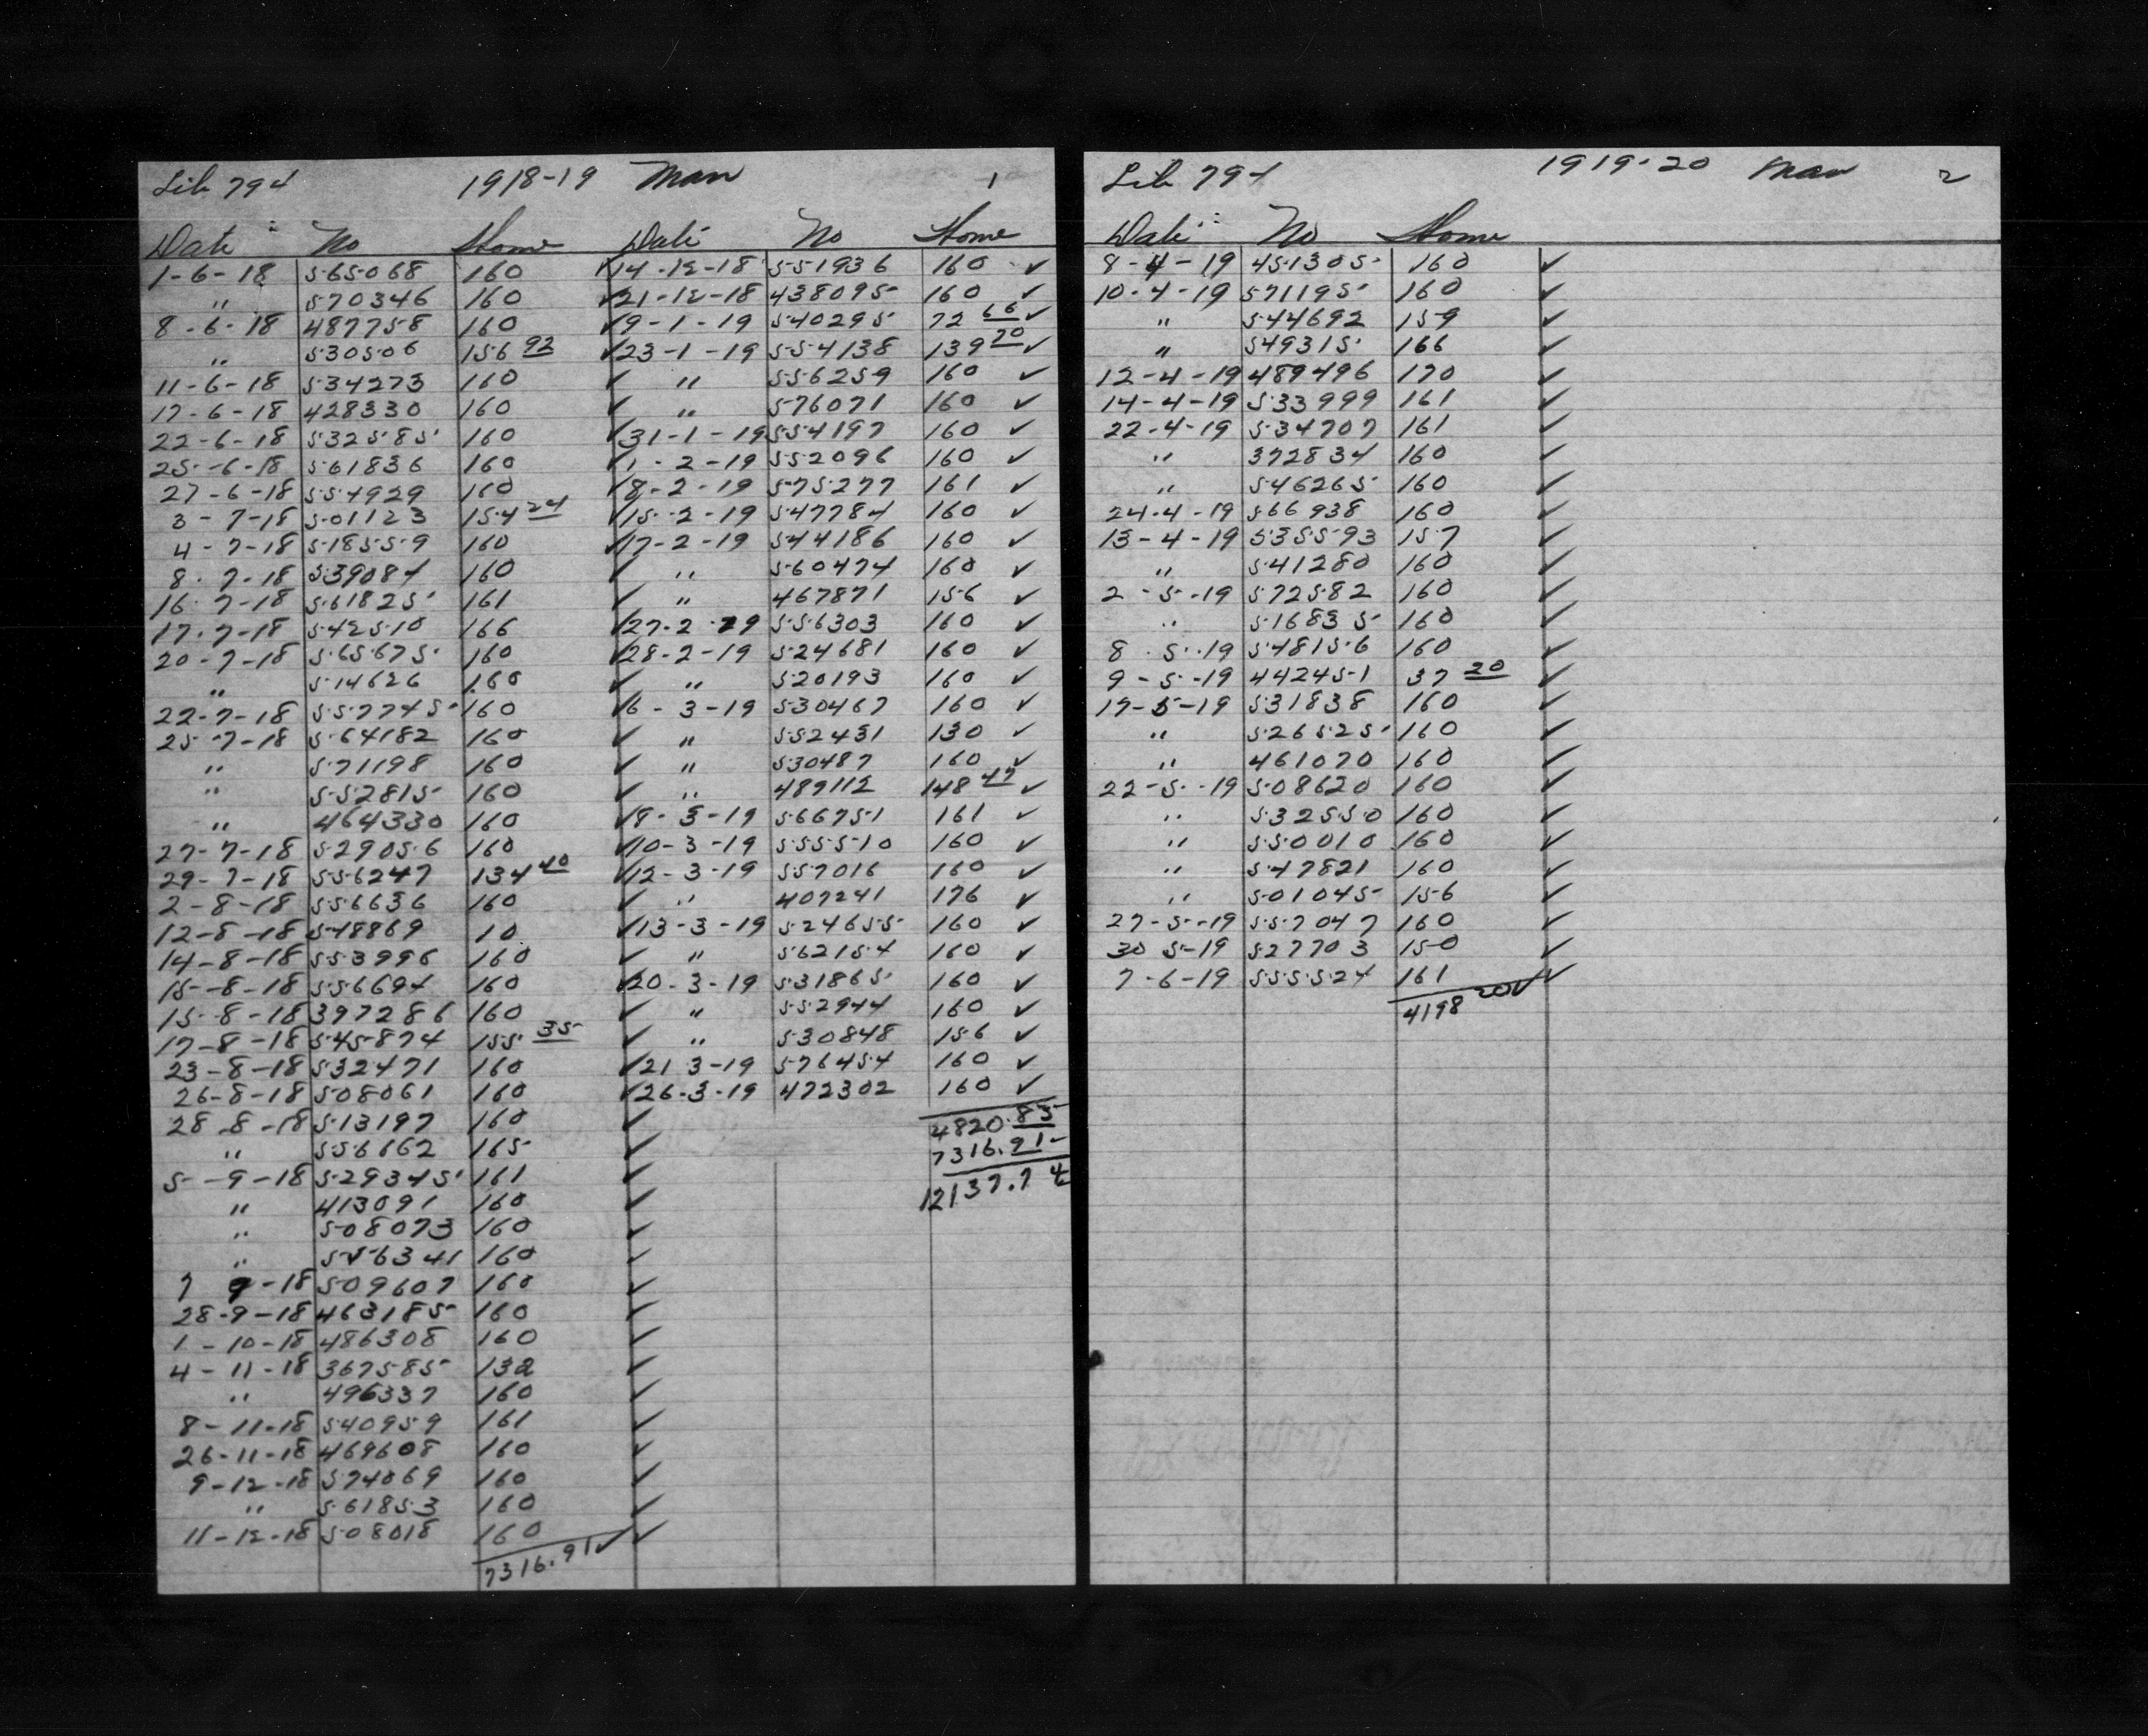 Lib 794 1918-19 Man 1
Date No Home Date No Home
1-6-18 565068 160 ✓ 14-12-18 551936 160 ✓
" 570346 160 ✓ 21-12-18 438095 160 ✓
8-6-18 487758 160 ✓ 9-1-19 540295 72 66 ✓
" 530506 156 92 ✓ 23-1-19 554138 139 20 ✓
11-6-18 534273 160 ✓ " 556259 160 ✓
17-6-18 428330 160 ✓ " 576071 160 ✓
22-6-18 532585 160 ✓ 31-1-19 554197 160 ✓
25-6-18 561836 160 ✓ 1-2-19 552096 160 ✓
27-6-18 554929 160 ✓ 8-2-19 575277 161 ✓
3-7-18 501123 154 24 ✓ 15-2-19 547784 160 ✓
4-7-18 518559 160 ✓ 17-2-19 544186 160 ✓
8-7-18 539084 160 ✓ " 560474 160 ✓
16-7-18 561825 161 ✓ " 467871 156 ✓
17-7-18 542510 166 ✓ 27-2-19 556303 160 ✓
20-7-18 565675 160 ✓ 28-2-19 524681 160 ✓
" 514626 160 ✓ " 520193 160 ✓
22-7-18 557745 160 ✓ 6-3-19 530467 160 ✓
25-7-18 564182 160 ✓ " 552431 130 ✓
" 571198 160 ✓ " 530487 160 ✓
" 552815 160 ✓ " 489112 148 47 ✓
" 464330 160 ✓ 8-3-19 566751 161 ✓
27-7-18 529056 160 ✓ 10-3-19 555510 160 ✓
29-7-18 556247 134 40 ✓ 12-3-19 557016 160 ✓
2-8-18 556636 160 ✓ " 407241 176 ✓
12-8-18 548869 10 ✓ 13-3-19 524655 160 ✓
14-8-18 553996 160 ✓ " 562154 160 ✓
15-8-18 556694 160 ✓ 20-3-19 531865 160 ✓
15-8-18 397286 160 ✓ " 552944 160 ✓
17-8-18 545874 155 35 ✓ " 530848 156 ✓
23-8-18 532471 160 ✓ 21-3-19 576454 160 ✓
26-8-18 508061 160 ✓ 26-3-19 472302 160 ✓
28-8-18 513197 160 ✓ 4820.83
" 556662 165 ✓ 7316.91
5-9-18 529345 161 ✓ 12137.74
" 413091 160 ✓
" 508073 160 ✓
" 556341 160 ✓
7 9-18 509607 160 ✓
28-9-18 463185 160 ✓
1-10-18 486308 160 ✓
4-11-18 367585 132 ✓
" 496337 160 ✓
8-11-18 540959 161 ✓
26-11-18 469608 160 ✓
9-12-18 574069 160 ✓
" 561853 160 ✓
11-12-18 508018 160 ✓
7316.91 ✓
Lib 794 1919-20 Man 2
Date No Home
8-4-19 451305 160 ✓
10-4-19 571195 160 ✓
" 544692 159 ✓
" 549315 166 ✓
12-4-19 489496 170 ✓
14-4-19 533999 161 ✓
22-4-19 534707 161 ✓
" 372834 160 ✓
" 546265 160 ✓
24-4-19 566938 160 ✓
13-4-19 535593 157 ✓
" 541280 160 ✓
2-5-19 572582 160 ✓
" 516835 160 ✓
8-5-19 548156 160 ✓
9-5-19 442451 37 20 ✓
17-5-19 531838 160 ✓
" 526525 160 ✓
" 461070 160 ✓
22-5-19 508620 160 ✓
" 532550 160 ✓
" 550010 160 ✓
" 547821 160 ✓
" 501045 156 ✓
27-5-19 557047 160 ✓
30 5-19 527703 150 ✓
7-6-19 555524 161 ✓
4198 20 ✓